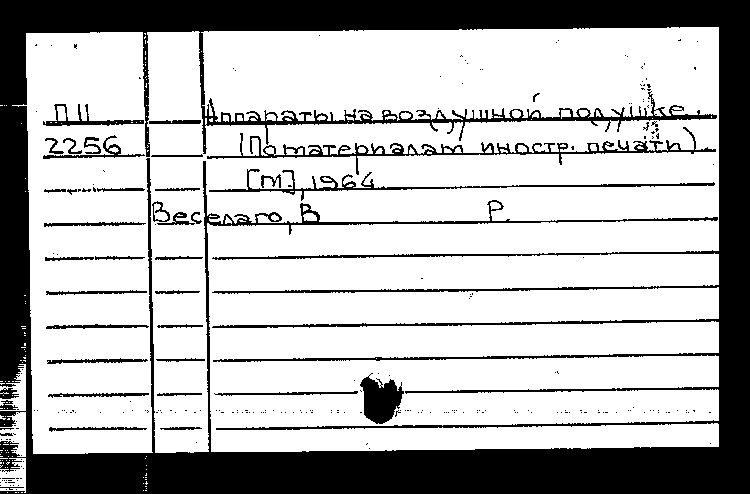 П 11 Аппараты на воздушной подушке.
2256 (По материалам иностр. печати).
[М], 1964
Веселаго, В Р.